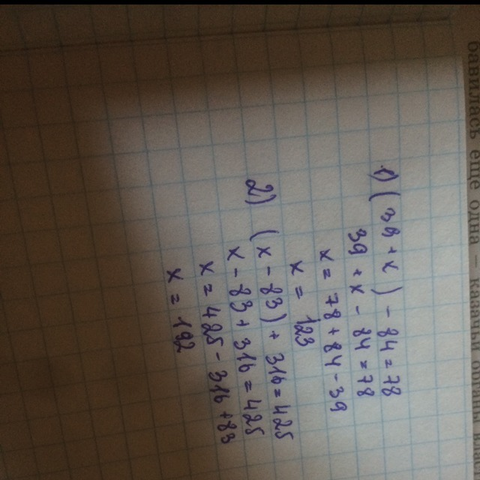 1) (39 + x) - 84 = 78
39 + x - 84 = 78
x = 78 + 84 - 39
x = 123
2) (x - 83) + 316 = 425
x - 83 + 316 = 425
x = 425 - 316 + 83
x = 192
бавилась еще одна – казачьи